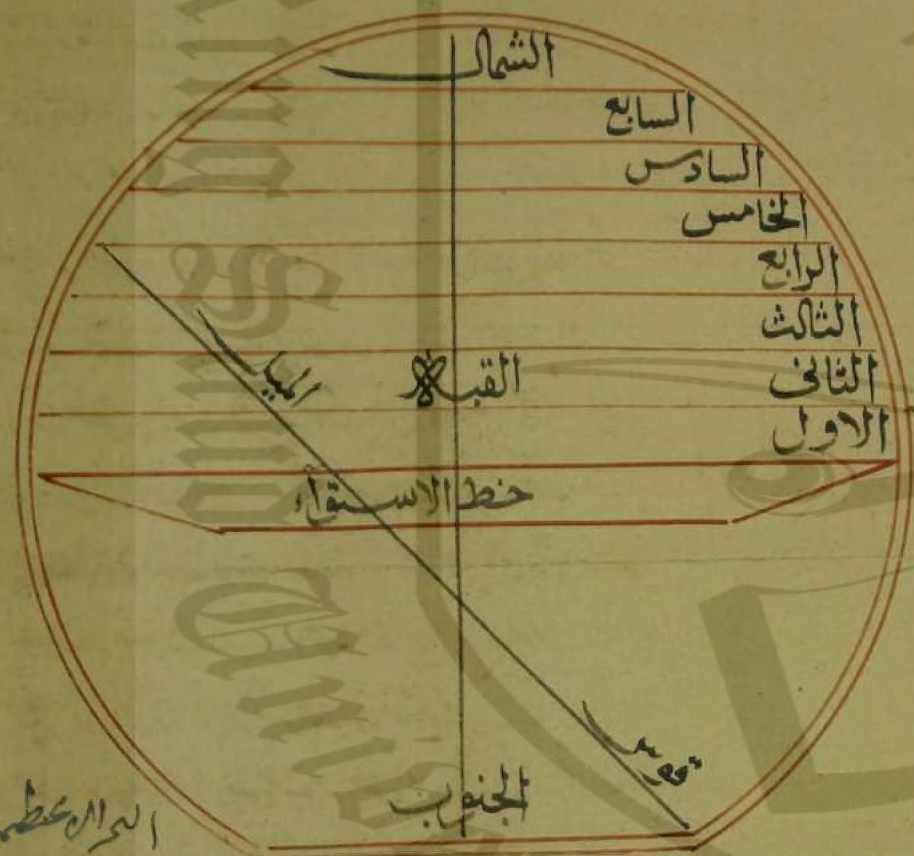 الشمال
السابع
السادس
الخامس
الرابع
الثالث
الثانى
القبلة
الاول
الميل
خط الاستواء
الجنوب
البحر الاعظم